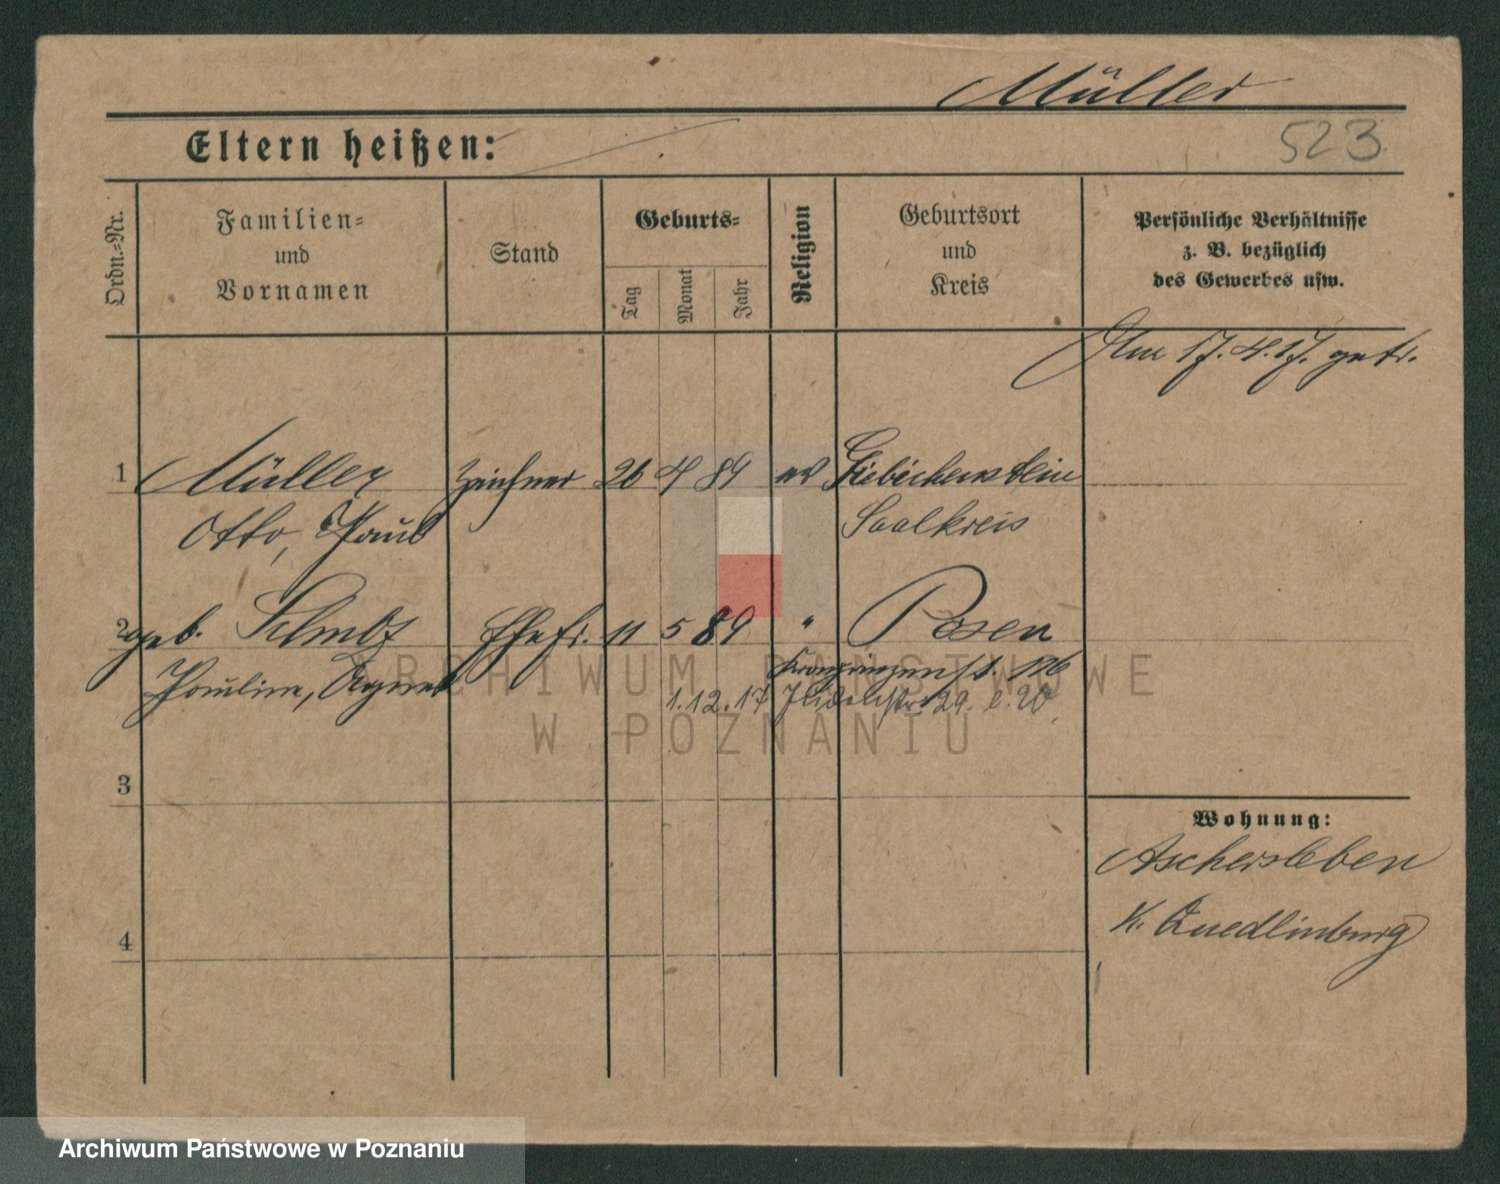 Müller
Eltern heißen:
523
Ordn.-Nr.
Familien-
und
Vornamen
Stand
Geburts-
Tag
Monat
Jahr
Religion
Geburtsort
und
Kreis
Persönliche Verhältnisse
z. B. bezüglich
des Gewerbes usw.
Am 17.4.17. getr.
1 Müller Zeichner 26 4 89 ev Giebichenstein
Otto, Paul Saalkreis
2 geb. Ehefr. 11 5 89 " Posen
Pauline, Agnes Kronprinzenst.
1.12.17 29.
3
Wohnung:
Aschersleben
K. Quedlinburg
4
ARCHIWUM PAŃSTWOWE
W POZNANIU
Archiwum Państwowe w Poznaniu